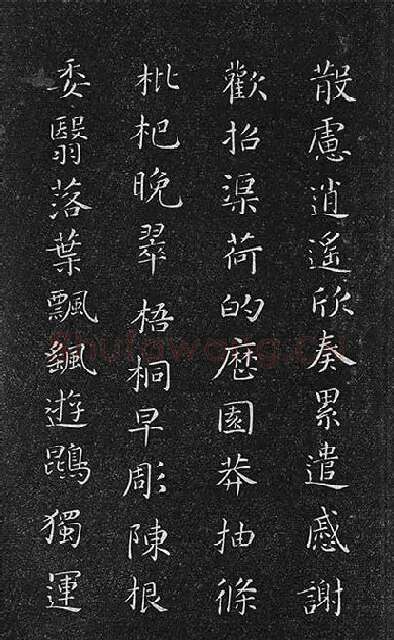 散慮逍遙欣奏累遣慼謝
歡招渠荷的歷園莽抽條
枇杷晚翠梧桐早彫陳根
委翳落葉飄颻遊鵾獨運